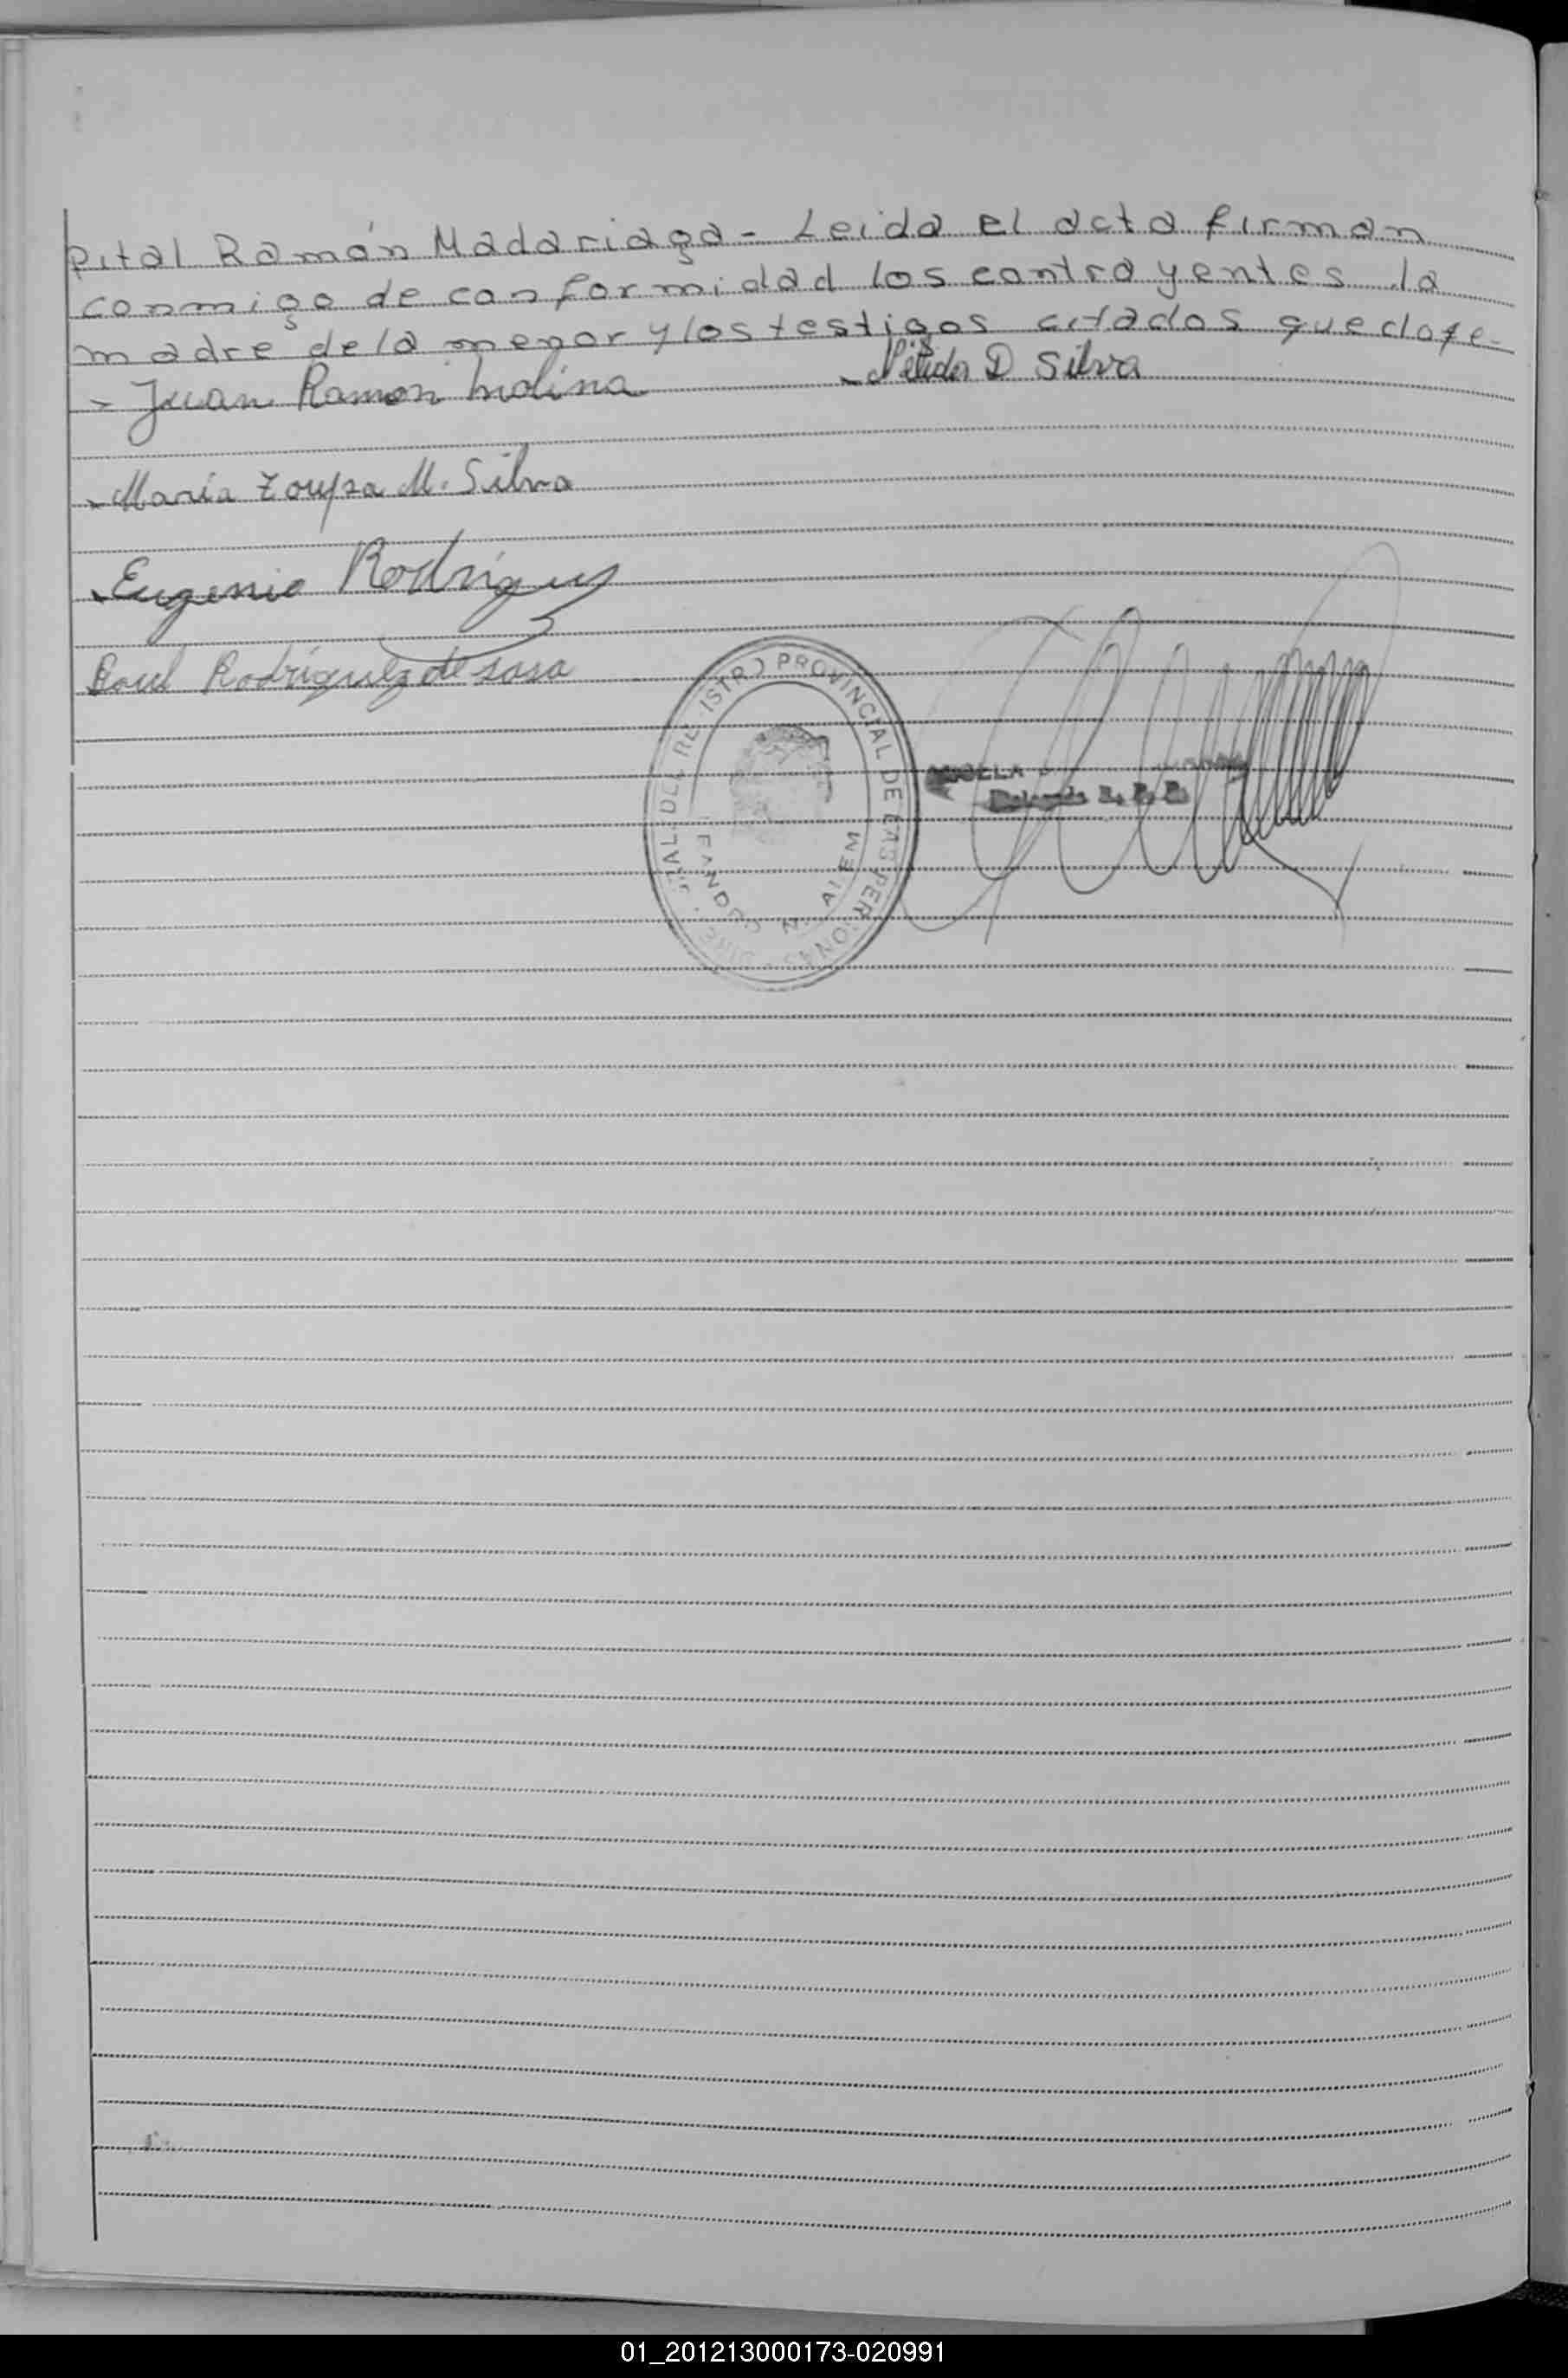 pital Ramón Madariaga - Leida el acta firman
conmigo de conformidad los contrayentes la
madre de la menor y los testigos citados que doy fe-
- Juan Ramon Molina - Nélida D Silva
- María M. Silva
- Eugenio Rodríguez
Raul Rodríguez de sosa
REGISTRO PROVINCIAL DE LAS PERSONAS
ALEM
Delegada R. P. P.
01_201213000173-020991